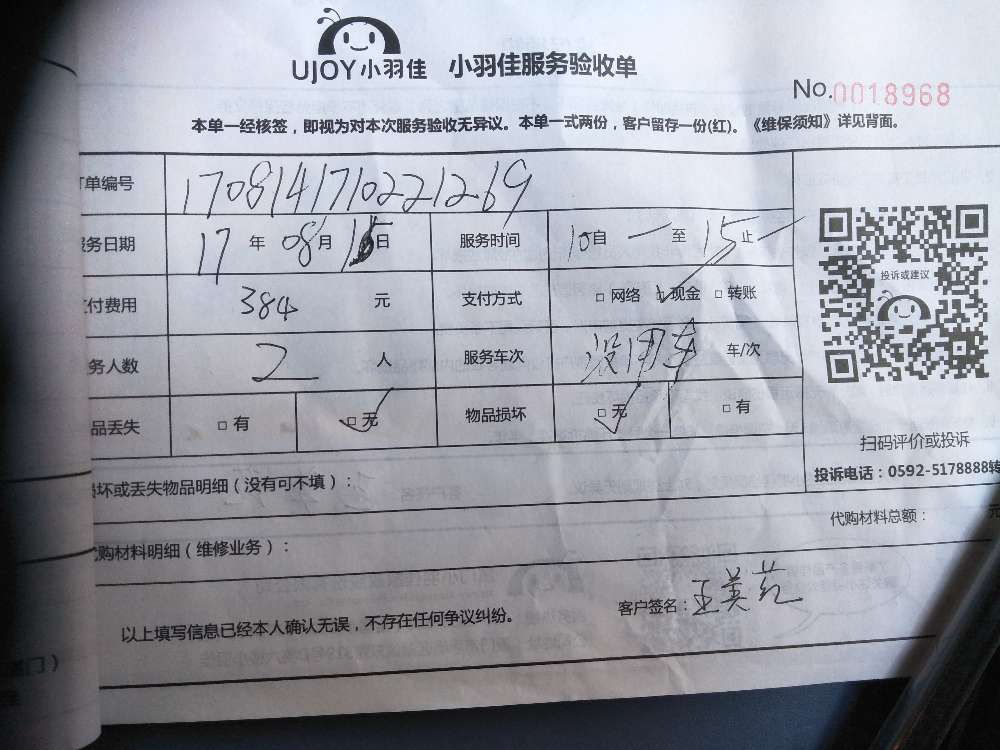 UJOY小羽佳 小羽佳服务验收单
No.0018968
本单一经核签，即视为对本次服务验收无异议。本单一式两份，客户留存一份(红)。《维保须知》详见背面。
单编号 1708141710221269
务日期 17年08月15日 服务时间 10自 一 至 15止
付费用 384 元 支付方式 □网络 ☑现金 □转账
务人数 2 人 服务车次 没用车 车/次
品丢失 □有 ☑无 物品损坏 ☑无 □有
投诉或建议
扫码评价或投诉
投诉电话：0592-5178888转
坏或丢失物品明细（没有可不填）：
代购材料总额： 元
购材料明细（维修业务）：
以上填写信息已经本人确认无误，不存在任何争议纠纷。
客户签名：王美
门）